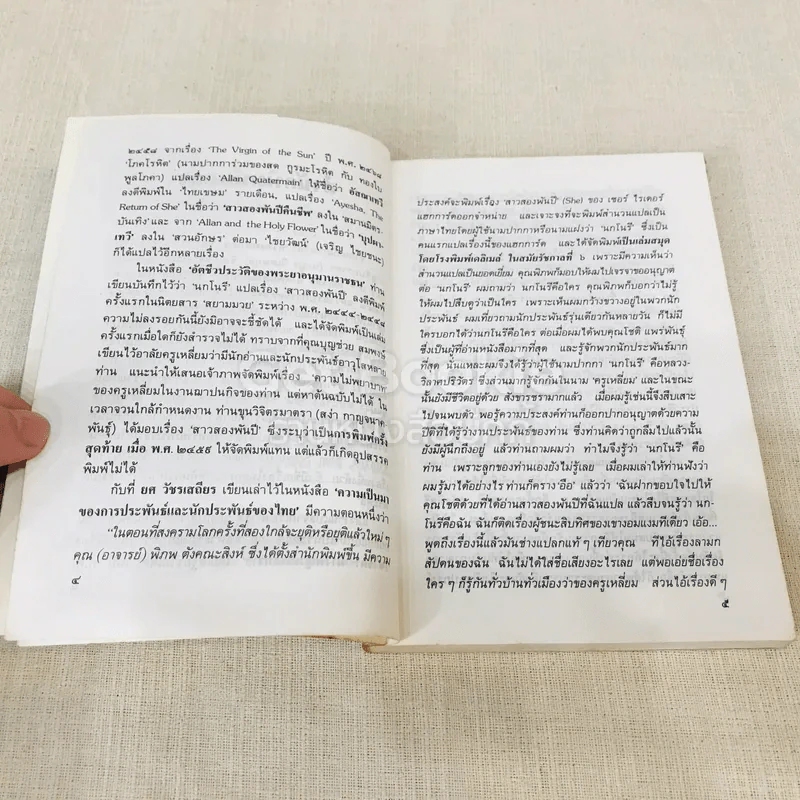 ๒๔๕๘ จากเรื่อง 'The Virgin of the Sun' ปี พ.ศ. ๒๔๖๘
'โภคโรหิต' (นามปากการ่วมของสด กูรมะโรหิต กับ ทองใบ
พูลโภคา) แปลเรื่อง 'Allan Quatermain' ให้ชื่อว่า อัสณาเทวี
ลงตีพิมพ์ใน 'ไทยเขษม' รายเดือน, แปลเรื่อง 'Ayesha, The
Return of She' ในชื่อว่า 'สาวสองพันปีคืนชีพ' ลงใน 'สมานมิตร-
บันเทิง' และ จาก 'Allan and the Holy Flower' ในชื่อว่า 'บุปผา-
เทวี' ลงใน 'สวนอักษร' ต่อมา 'ไชยวัฒน์' (เจริญ ไชยชนะ)
ก็ได้แปลไว้อีกหลายเรื่อง
ในหนังสือ 'อัตชีวประวัติของพระยาอนุมานราชธน' ท่าน
เขียนบันทึกไว้ว่า 'นกโนรี' แปลเรื่อง 'สาวสองพันปี' ลงตีพิมพ์
ครั้งแรกในนิตยสาร 'สยามมวย' ระหว่าง พ.ศ. ๒๔๔๔-๒๔๕๘
ความไม่ลงรอยกันนี้ยังมิอาจจะชี้ชัดได้ และได้จัดพิมพ์เป็นเล่ม
ครั้งแรกเมื่อใดก็ยังสำรวจไม่ได้ ทราบจากที่คุณบุญช่วย สมพงษ์
เขียนไว้อาลัยครูเหลี่ยมว่ามีนักอ่านและนักประพันธ์อาวุโสหลาย
ท่าน แนะนำให้เสนอเจ้าภาพจัดพิมพ์เรื่อง 'ความไม่พยาบาท'
ของครูเหลี่ยมในงานฌาปนกิจของท่าน แต่หาต้นฉบับไม่ได้ ใน
เวลาจวนใกล้กำหนดงาน ท่านขุนวิจิตรมาตรา (สง่า กาญจนาค-
พันธุ์) ได้มอบเรื่อง 'สาวสองพันปี' ซึ่งระบุว่าเป็นการพิมพ์ครั้ง
สุดท้าย เมื่อ พ.ศ. ๒๔๕๙ ให้จัดพิมพ์แทน แต่แล้วก็เกิดอุปสรรค
พิมพ์ไม่ได้
กับที่ ยศ วัชรเสถียร เขียนเล่าไว้ในหนังสือ 'ความเป็นมา
ของการประพันธ์และนักประพันธ์ของไทย' มีความตอนหนึ่งว่า
"ในตอนที่สงครามโลกครั้งที่สองใกล้จะยุติหรือยุติแล้วใหม่ ๆ
คุณ (อาจารย์) พิภพ ตังคณะสิงห์ ซึ่งได้ตั้งสำนักพิมพ์ขึ้น มีความ
๔
ประสงค์จะพิมพ์เรื่อง 'สาวสองพันปี' (She) ของ เซอร์ ไรเดอร์
แฮกการ์ดออกจำหน่าย และเจาะจงที่จะพิมพ์สำนวนแปลเป็น
ภาษาไทยโดยผู้ใช้นามปากกาหรือนามแฝงว่า "นกโนรี" ซึ่งเป็น
คนแรกแปลเรื่องนี้ของแฮกการ์ด และได้จัดพิมพ์เป็นเล่มสมุด
โดยโรงพิมพ์เดลิเมล์ ในสมัยรัชกาลที่ ๖ เพราะมีความเห็นว่า
สำนวนแปลเป็นยอดเยี่ยม คุณพิภพก็มอบให้ผมไปเจรจาขออนุญาต
ต่อ 'นกโนรี' ผมถามว่า นกโนรีคือใคร คุณพิภพก็บอกว่าไม่รู้
ให้ผมไปสืบดูว่าเป็นใคร เพราะเห็นผมกว้างขวางอยู่ในพวกนัก
ประพันธ์ ผมเที่ยวถามนักประพันธ์รุ่นเดียวกันหลายคน ก็ไม่มี
ใครบอกได้ว่านกโนรีคือใคร ต่อเมื่อผมได้พบคุณโชติ แพร่พันธุ์
ซึ่งเป็นผู้ที่อ่านหนังสือมากที่สุด และรู้จักพวกนักประพันธ์มาก
ที่สุด นั่นแหละผมจึงได้รู้ว่าผู้ใช้นามปากกา "นกโนรี" คือหลวง-
วิลาศปริวัตร ซึ่งส่วนมากรู้จักกันในนาม 'ครูเหลี่ยม' และในขณะ
นั้นยังมีชีวิตอยู่ด้วย สังขารชรามากแล้ว เมื่อผมรู้เช่นนี้จึงสืบเสาะ
ไปจนพบตัว พอรู้ความประสงค์ท่านก็ออกปากอนุญาตด้วยความ
ปีติที่ได้รู้ว่างานประพันธ์ของท่าน ซึ่งท่านคิดว่าถูกลืมไปแล้วนั้น
ยังมีผู้นึกถึงอยู่ แล้วท่านถามผมว่า ทำไมจึงรู้ว่า นกโนรี คือ
ท่าน เพราะลูกของท่านเองยังไม่รู้เลย เมื่อผมเล่าให้ท่านฟังว่า
ผมรู้มาได้อย่างไร ท่านก็คราง 'อือ' แล้วว่า 'ฉันฝากขอบใจไปให้
คุณโชติด้วยที่ได้อ่านสาวสองพันปีที่ฉันแปล แล้วสืบจนรู้ว่า นก-
โนรีคือฉัน ฉันก็ติดเรื่องผู้ชนะสิบทิศของเขางอมแงมทีเดียว เอ้อ...
พูดถึงเรื่องนี้แล้วมันช่างแปลกแท้ ๆ เทียวคุณ ทีไอ้เรื่องลามก
สัปดนของฉัน ฉันไม่ได้ใส่ชื่อเสียงอะไรเลย แต่พอเอ่ยชื่อเรื่อง
ใคร ๆ ก็รู้กันทั่วบ้านทั่วเมืองว่าของครูเหลี่ยม ส่วนไอ้เรื่องดี ๆ
๕